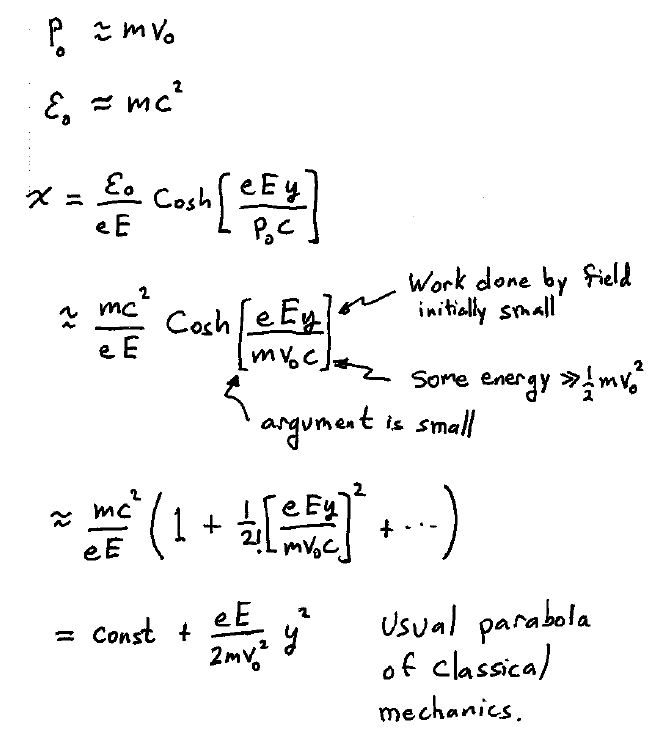 P₀ ≈ mv₀
ℰ₀ ≈ mc²
x = ℰ₀/eE Cosh[eEy/P₀c]
≈ mc²/eE Cosh[eEy/mv₀c]
Work done by field
initially small
Some energy ≫ ½mv₀²
argument is small
≈ mc²/eE (1 + 1/2! [eEy/mv₀c]² + ⋯)
= const + eE/2mv₀² y²
Usual parabola
of classical
mechanics.